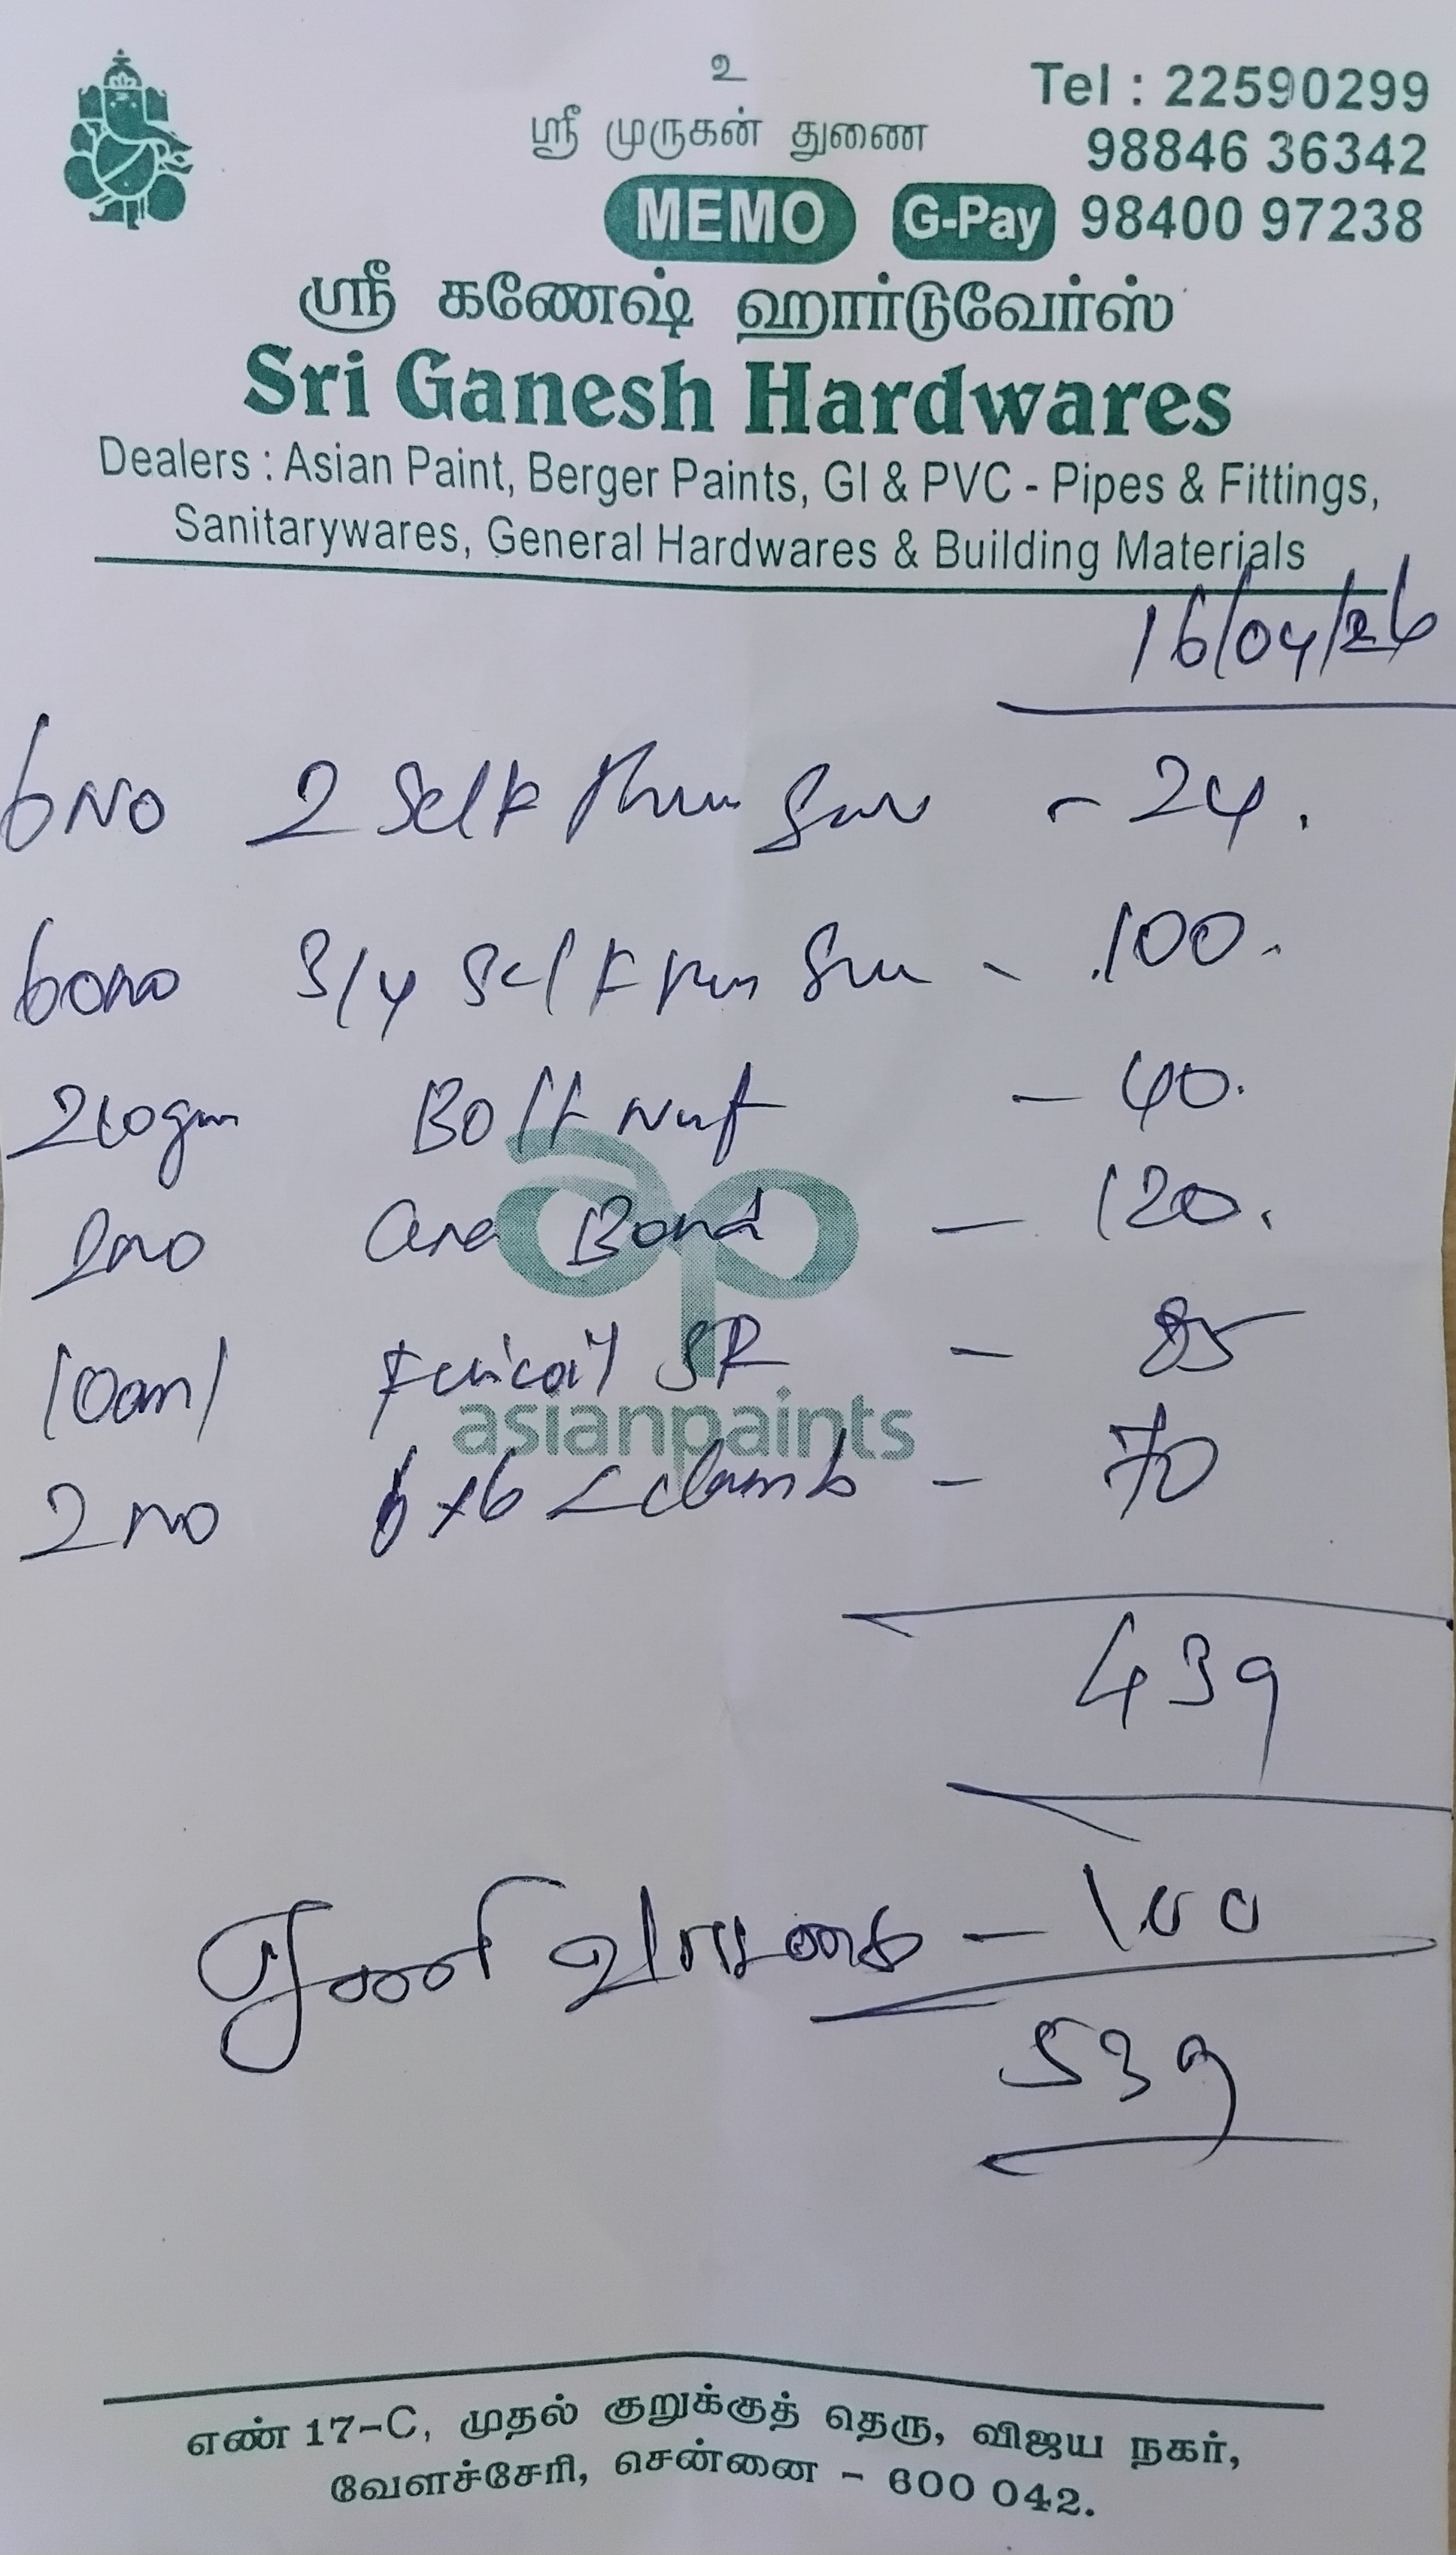 உ
Tel : 22590299
ஸ்ரீ முருகன் துணை
98846 36342
MEMO G-Pay 98400 97238
ஸ்ரீ கணேஷ் ஹார்டுவேர்ஸ்
Sri Ganesh Hardwares
Dealers : Asian Paint, Berger Paints, GI & PVC - Pipes & Fittings,
Sanitarywares, General Hardwares & Building Materials
16/04/26
6NO 2 Self - 24.
60no 3/4 Self - 100.
gm Bolt nut - 40.
2no Bond - 120.
100ml SR - 85
asianpaints
2 no 6x6 L clamb - 70
439
ஏணி வாடகை - 100
539
எண் 17-C, முதல் குறுக்குத் தெரு, விஜய நகர்,
வேளச்சேரி, சென்னை - 600 042.